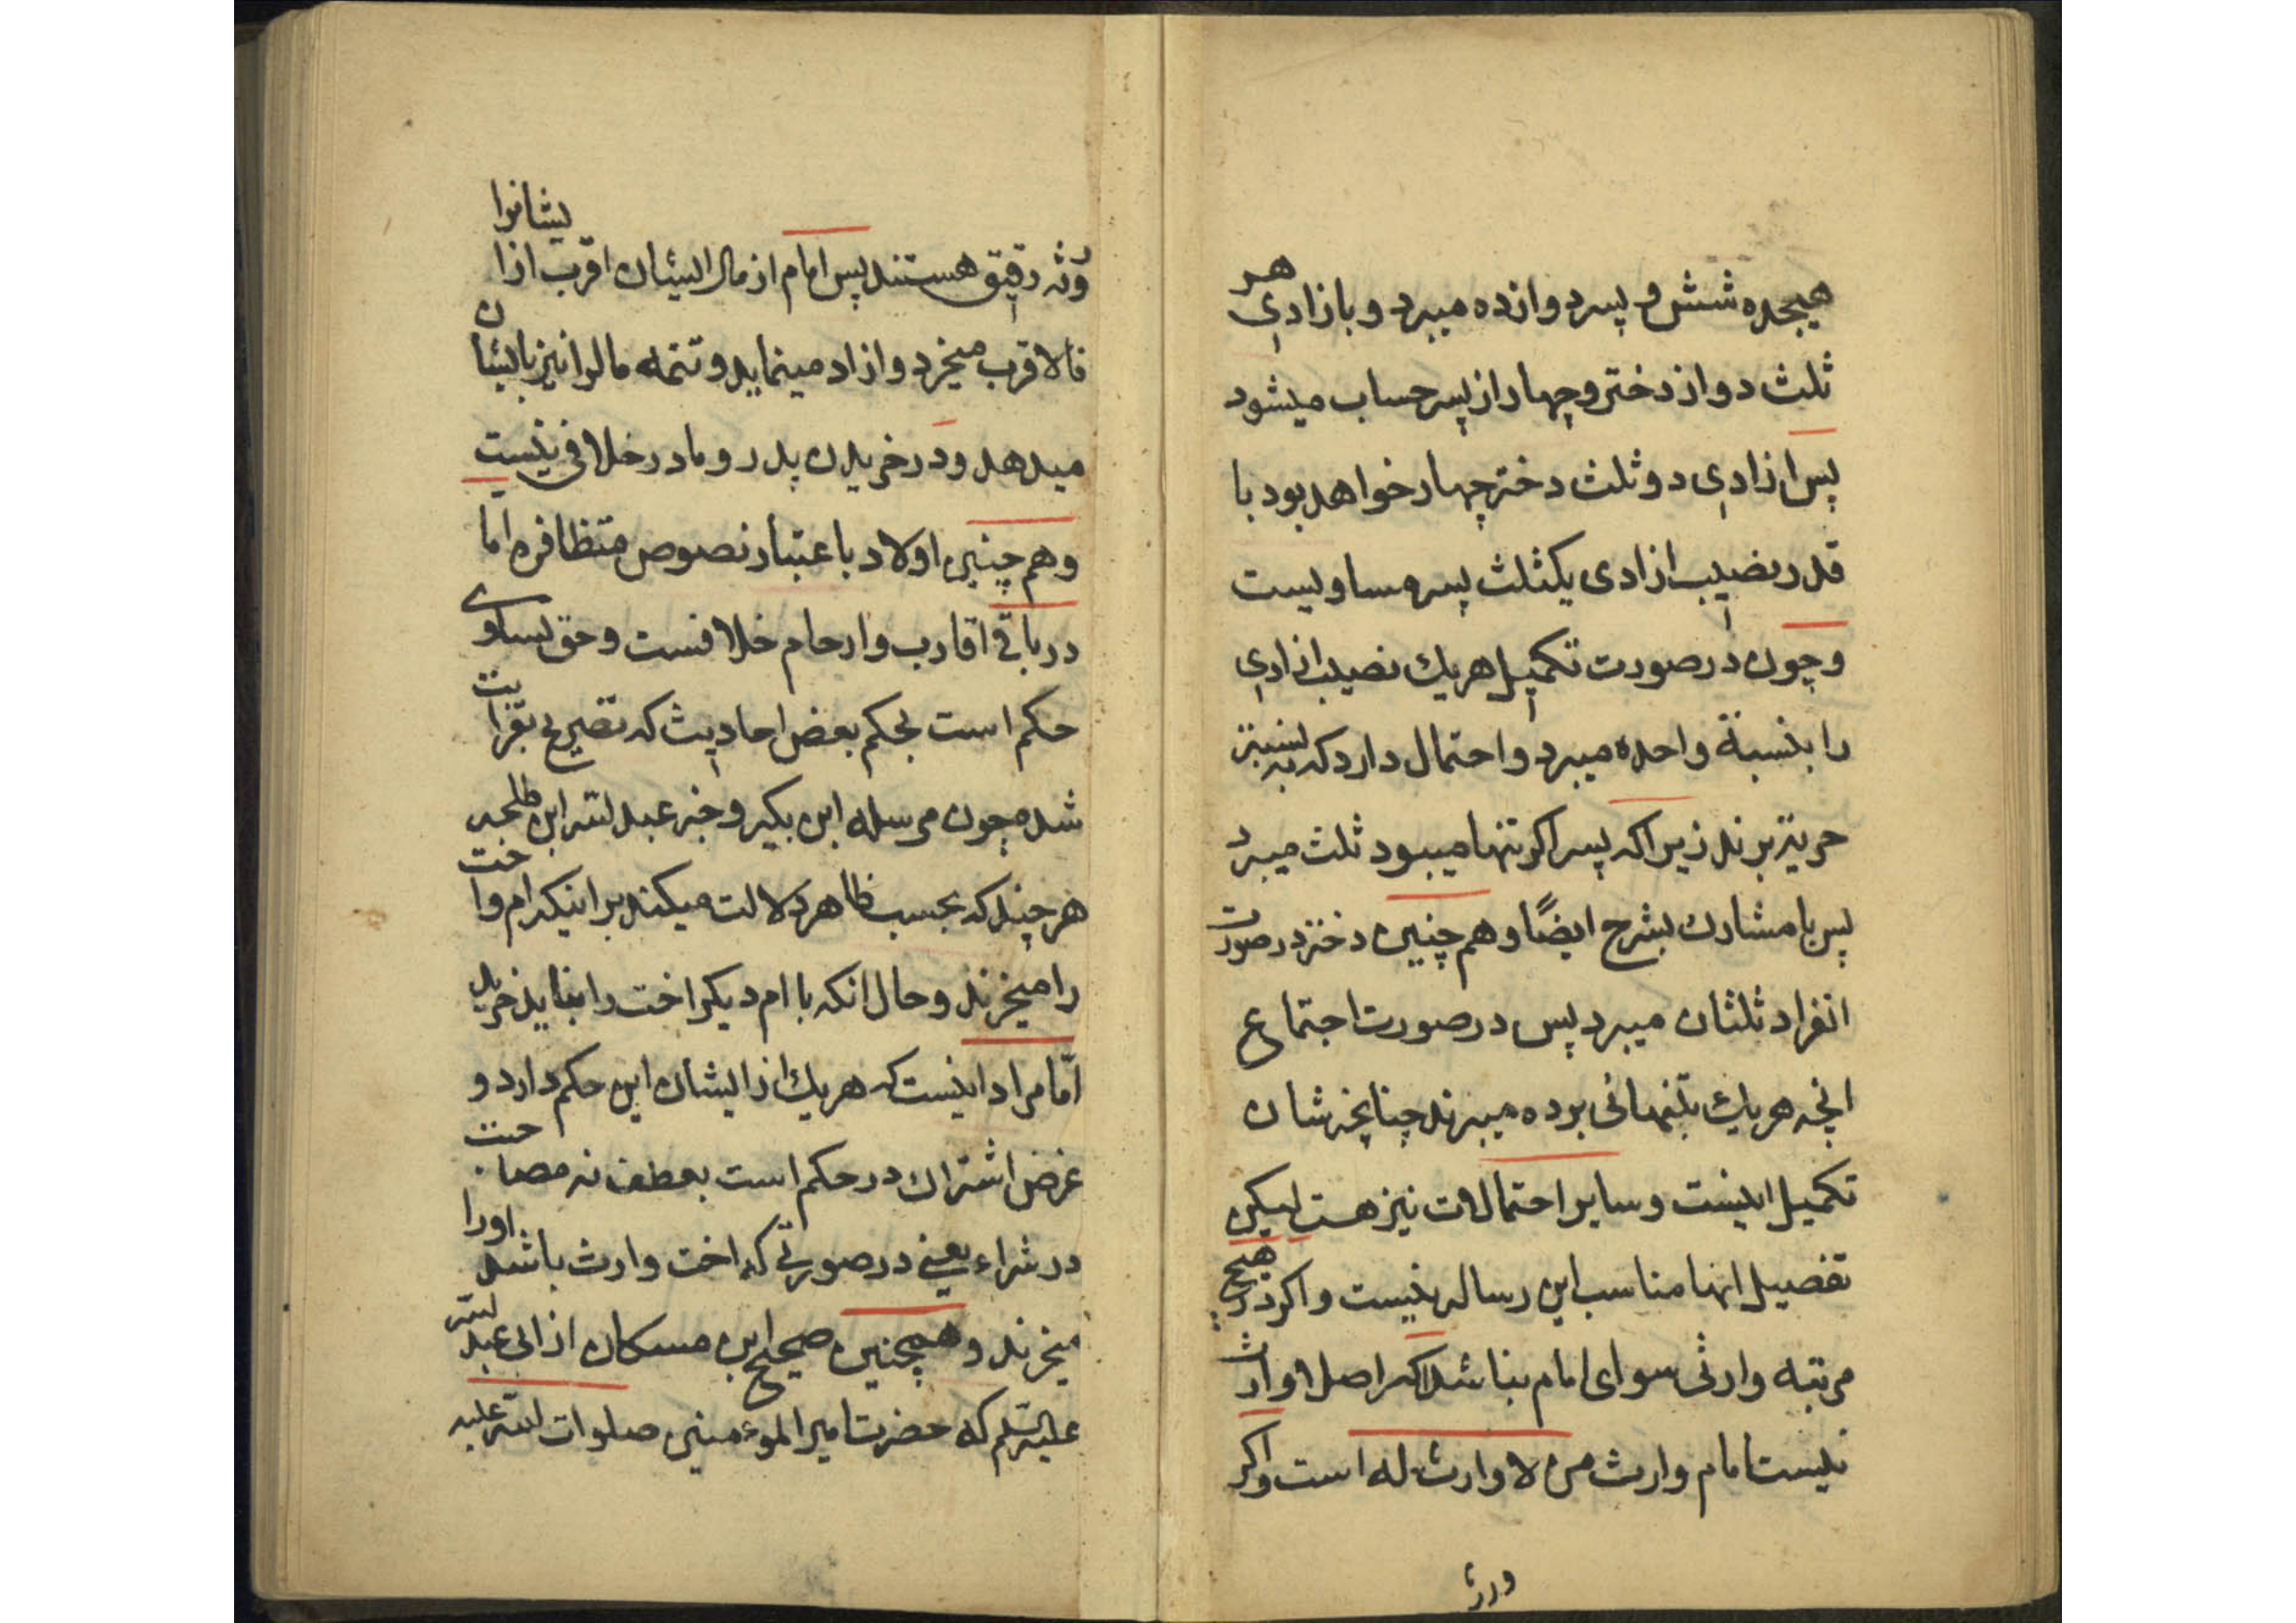 هیجده شش و پسر دوازده میبرد و بازادی هر
ثلث دو از دختر و چهار از پسر حساب میشود
پس ازادی دو ثلث دختر چهار خواهد بود با
قدر نصیب ازادی یکثلث پسر مساویست
و چون در صورت تکمیل هر یک نصیب ازادی
را بنسبة واحده میبرد و احتمال دارد که به نسبت
حریت برند زیرا که پسر اکر تنها میبود ثلث میبرد
پس با مشارک بشرح ایضًا و هم چنین دختر در صورت
انفراد ثلثان میبرد پس در صورت اجتماع
انچه هر یک بتنهائی برده میبرند چنانچه شان
تکمیل اینست و سایر احتمالات نیز هست لیکن
تفصیل انها مناسب این رساله نیست و اکر در هیچ
مرتبه وارثی سوای امام نباشد اکر اصلا وارث
نیست امام وارث من لا وارث له است و اکر
ورثه
ورثه رقیق هستند پس امام از مال ایشان اقرب از ایشانرا
فالاقرب میخرد و ازاد مینماید و تتمه مالرا نیز بایشان
میدهد و در خریدن پدر و مادر خلافی نیست
و هم چنین اولاد باعتبار نصوص متظافره اما
در باقی اقارب و ارحام خلافست و حق تساوی
حکم است بحکم بعض احادیث که تصریح بقرابت
شده چون مرسله ابن بکیر و خبر عبد الله ابن طلحه
هر چند که بحسب ظاهر دلالت میکند بر اینکه ام و اخت
را میخرند و حال انکه با ام دیکر اخت را نباید خرید
امّا مراد اینست که هر یک از ایشان این حکم دارد و
غرض اشتراک در حکم است بعطف نه مصاحبت
در شراء یعنی در صورتی که اخت وارث باشد اورا
میخرند و همچنین صحیح ابن مسکان از ابی عبد الله
علیه السلم که حضرت امیر الموءمنین صلوات الله علیه